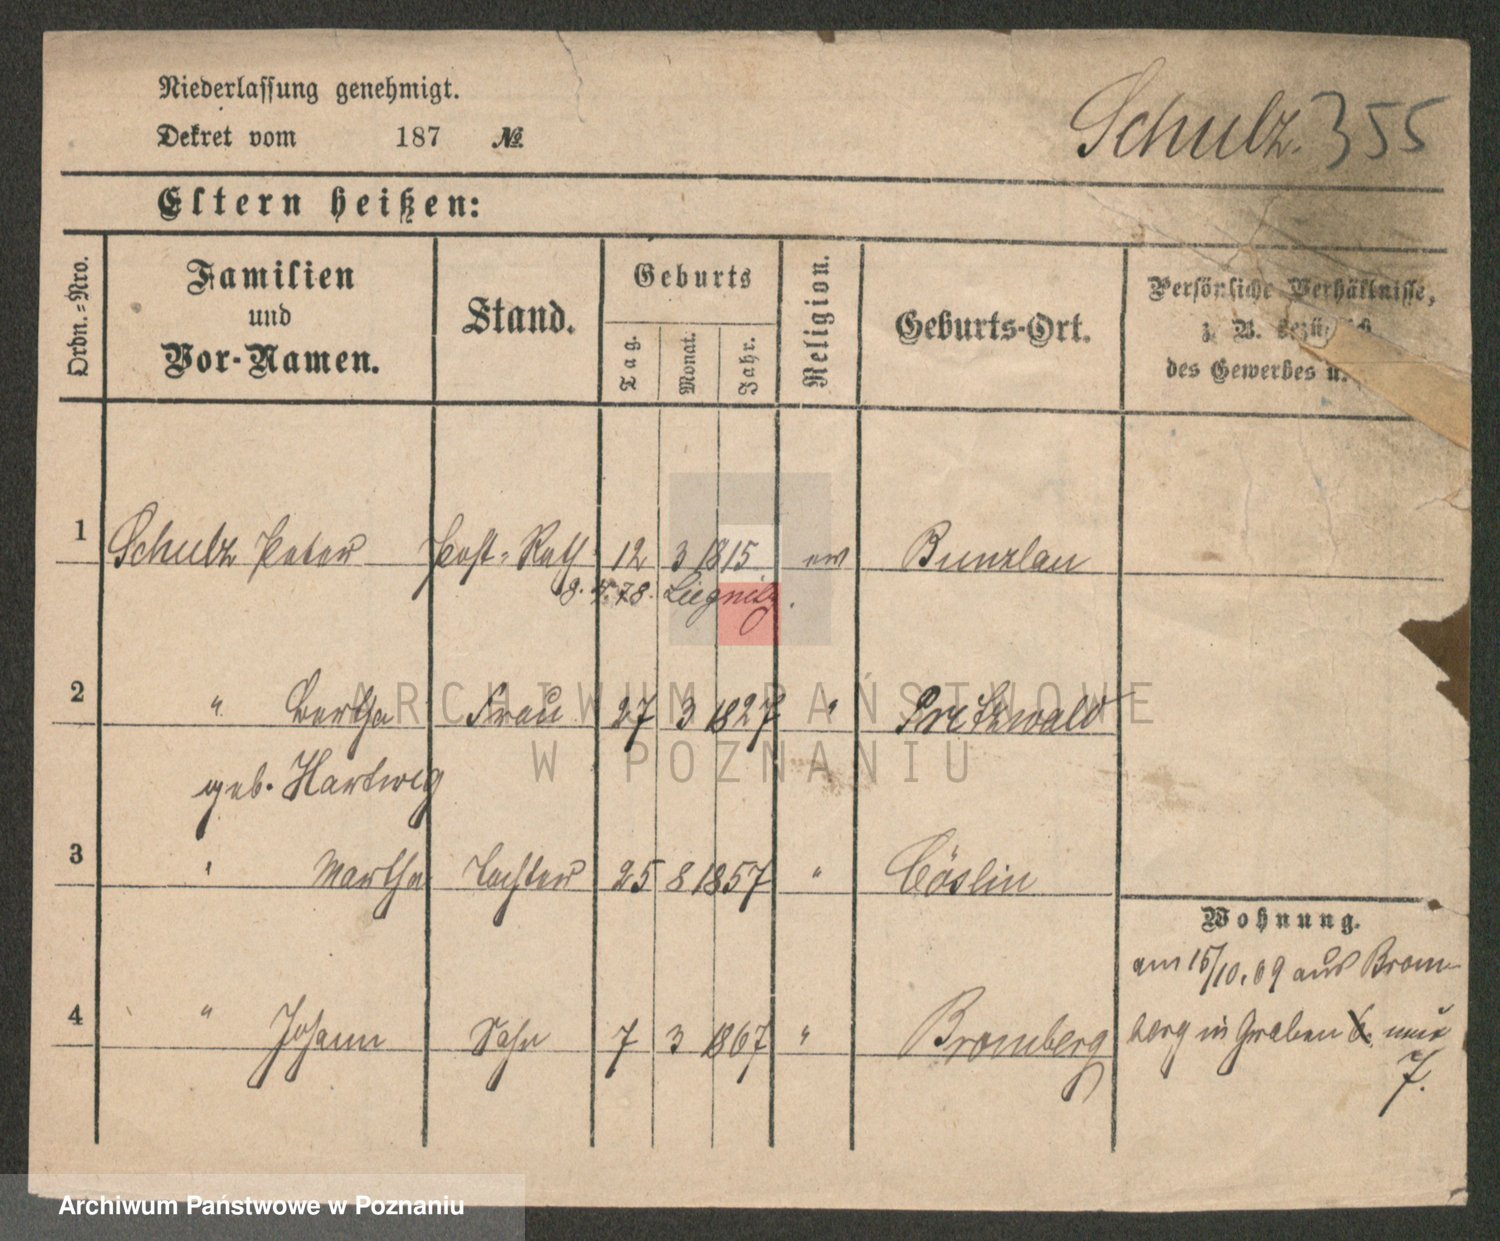 Niederlassung genehmigt.
Dekret vom 187 №
Schulz. 355
Eltern heißen:
Ordn.-Nro.
Familien
und
Vor-Namen.
Stand.
Geburts
Tag.
Monat.
Jahr.
Religion.
Geburts-Ort.
Persönliche Verhältnisse,
z. B.
des Gewerbes u.
1 Schulz Peter Post-Rath 12 3 1815 ev Bunzlau
8. 4. 78. Liegnitz.
2 " Bertha Frau 27 3 1827 " Pritzwald
geb. Hartwig
3 " Martha Tochter 25 8 1857 " Cöslin
Wohnung.
am 15/10. 69 aus Brom-
4 " Johann Sohn 7 3 1867 " Bromberg
berg in Graben 6. nun
7.
ARCHIWUM PAŃSTWOWE
W POZNANIU
Archiwum Państwowe w Poznaniu